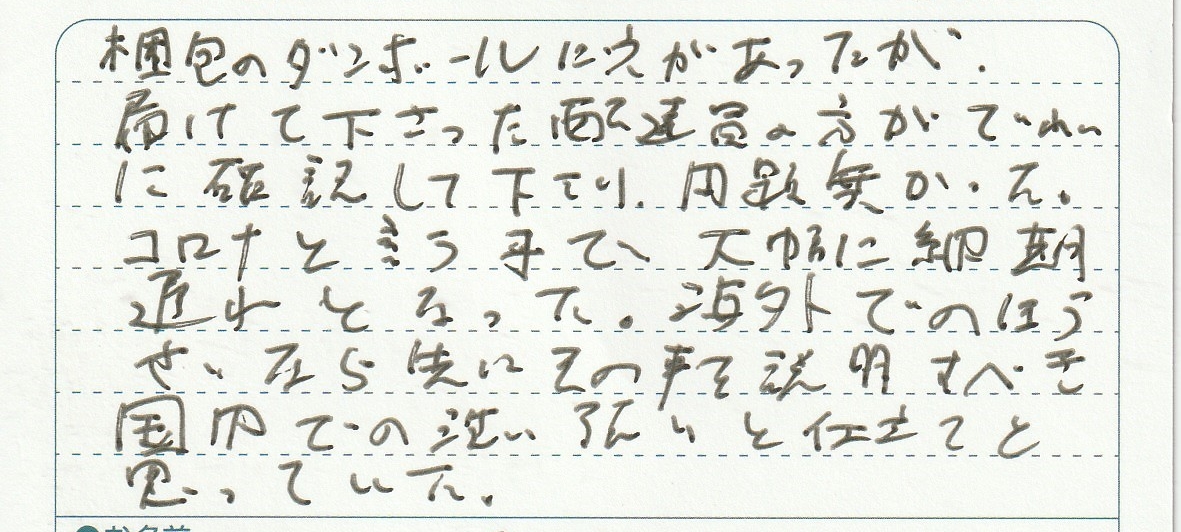 梱包のダンボールに穴があったが、
届けて下さった配達員の方がていねい
に確認して下さり、問題無かった。
コロナと言う事で、大幅に納期
遅れとなった。海外でのほう
せいなら先にその事を説明すべき
国内での洗い張いと仕立てと
思っていた。